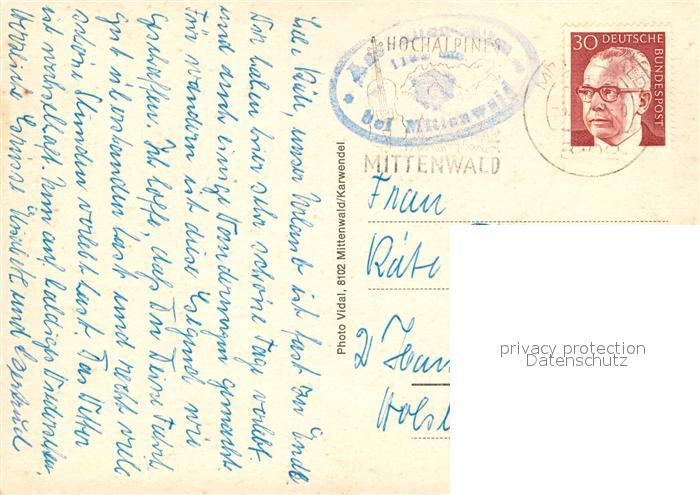 Liebe Käte, unser Urlaub ist fast zu Ende
Wir haben hier sehr schöne Tage verlebt
und auch einige Wanderungen gemacht.
Für wandern ist diese Gegend wie
geschaffen. Ich hoffe, daß Du Deine Fahrt
gut überstanden hast und recht viele
schöne Stunden verlebt hast. Das Wetter
ist wechselhaft. Nun auf baldiges Wiedersehen
Grüsse Hinrich und Gertrud
Photo Vidal, 8102 Mittenwald/Karwendel
HOCHALPINES
MITTENWALD
bei Mittenwald
30 DEUTSCHE
BUNDESPOST
Frau
Käte
2 Ham
Holst
privacy protection
Datenschutz